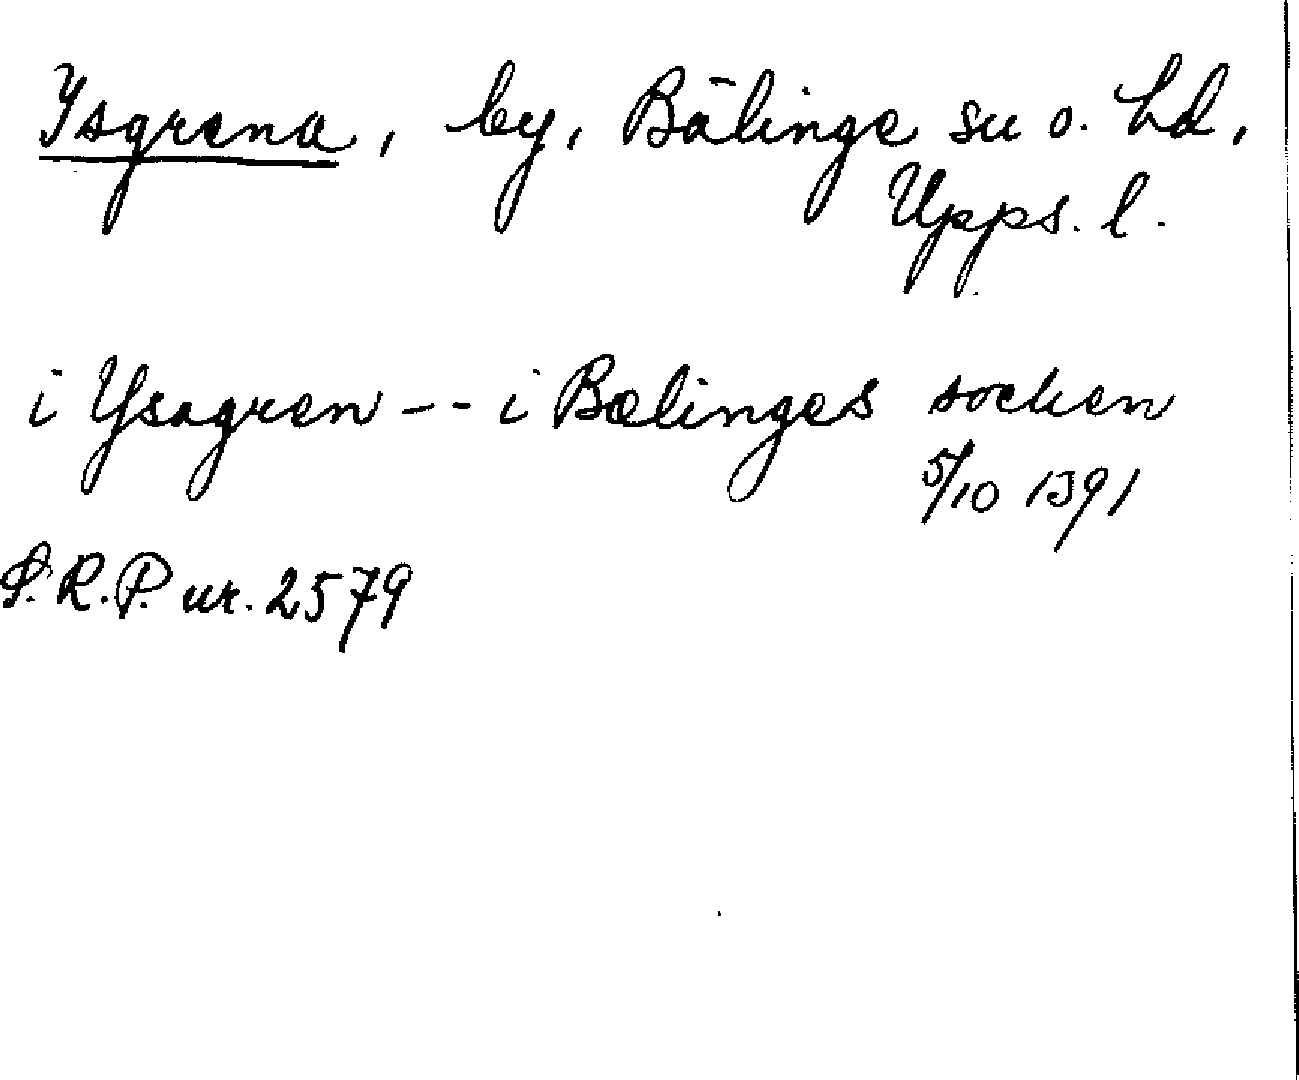 Ysgrena, by, Bälinge sn o. hd,
Upps. l.
i Ysagren -- i Bælinges socken
5/10 1391
S.R.P. nr. 2579